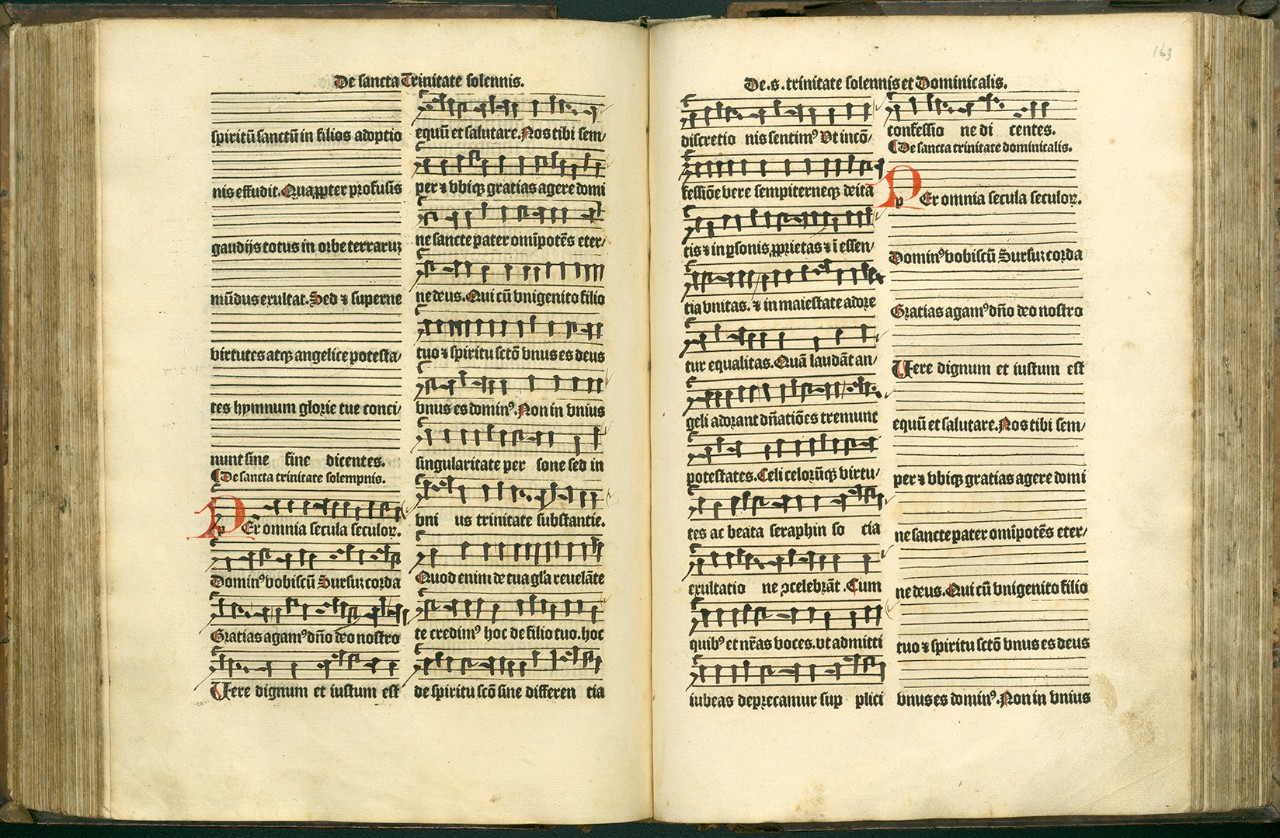 De sancta Trinitate solennis.
spiritū sanctū in filios adoptio
nis effudit. Quapꝓpter profusis
gaudijs totus in orbe terrarum
mūdus exultat. Sed ⁊ superne
virtutes atqꝫ angelice potesta/
tes hymnum glorie tue conci/
nunt sine fine dicentes.
De sancta trinitate solempnis.
PEr omnia secula seculoꝝ.
Dominꝰ vobiscū Sursuꝫ corda
Gratias agamꝰ dn̄o deo nostro
Uere dignum et iustum est
equū et salutare. Nos tibi sem/
per ⁊ vbiqꝫ gratias agere domi
ne sancte pater om̄ipotēs eter/
ne deus. Qui cū vnigenito filio
tuo ⁊ spiritu sctō vnus es deus
vnus es dominꝰ. Non in vnius
singularitate per sone sed in
vni us trinitate substantie.
Quod enim de tua gl̄a reuelāte
te credimꝰ hoc de filio tuo. hoc
de spiritu scō sine differen tia
De .s. trinitate solennis et Dominicalis.
163
discretio nis sentimꝰ Ut in cō/
fessiōe vere sempiterneqꝫ deita
tis ⁊ in ꝑsonis ꝓprietas ⁊ ī essen/
tia vnitas. ⁊ in maiestate adore
tur equalitas. Quā laudāt an/
geli adorant dn̄atiōes tremunt
potestates. Celi celorūqꝫ virtu/
tes ac beata seraphin so cia
exultatio ne ꝯcelebrāt. Cum
quibꝰ et nr̄as voces. vt admitti
iubeas deprecamur sup plici
confessio ne di centes.
De sancta trinitate dominicalis.
PEr omnia secula seculoꝝ.
Dominꝰ vobiscū Sursuꝫ corda
Gratias agamꝰ dn̄o deo nostro
Uere dignum et iustum est
equū et salutare. Nos tibi sem/
per ⁊ vbiqꝫ gratias agere domi
ne sancte pater om̄ipotēs eter/
ne deus. Qui cū vnigenito filio
tuo ⁊ spiritu sctō vnus es deus
vnus es dominꝰ. Non in vnius